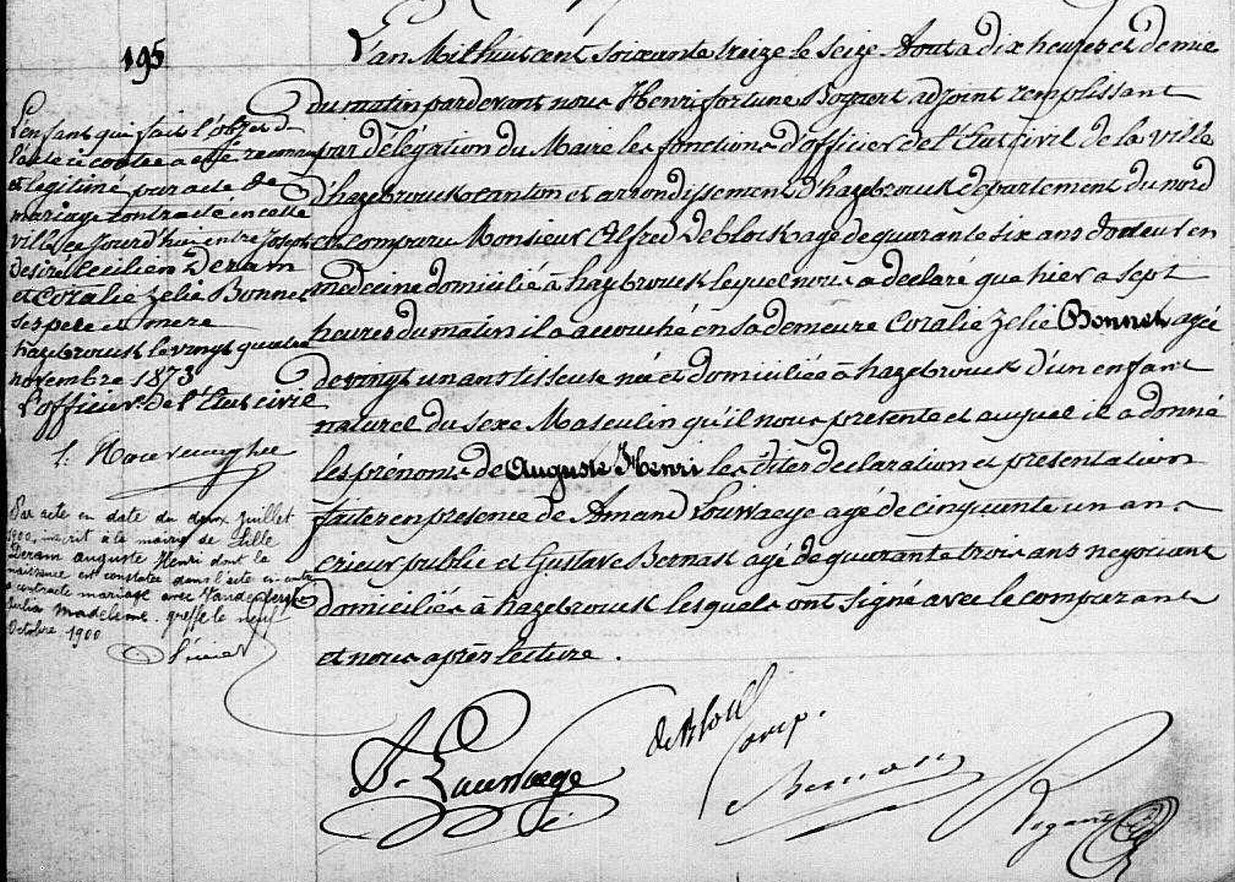 195
L'an Mil huit cent soixante treize le seize Aout a dix heures et demie
du matin pardevant nous Henri fortune Bogaert adjoint remplissant
par délégation du Maire les fonctions d'officier de l'Etat civil de la ville
d'hazebrouck canton et arrondissement d'hazebrouck département du nord
est comparu Monsieur Alfred Deblock agé de quarante six ans docteur en
médecine domicilié à hazebrouck lequel nous a declaré que hier a sept
heures du matin il a accouché en sa demeure Coralie Zelie Bonnet agée
de vingt un ans tisseuse née et domiciliée à hazebrouck d'un enfant
naturel du sexe Masculin qu'il nous presente et auquel il a donné
les prénoms de Auguste Henri les dites declaration et présentation
faites en presence de Amand Louwaege agé de cinquante un ans
crieur public et Gustave Bernast agé de quarante trois ans negociant
domiciliés à hazebrouck lesquels ont signé avec le comparant
et nous après lecture.
L'enfant qui fait l'objet de
l'acte ci contre a été reconnu
et legitimé par acte de
mariage contracté en cette
ville ce jourd'hui entre Joseph
desiré Cecilien Deram
et Coralie Zelie Bonnet
ses pere et mere
hazebrouck le vingt quatre
novembre 1873
L'officier de l'Etat civil
Par acte en date du deux juillet
1900, inscrit à la mairie de Lille
Deram auguste Henri dont la
naissance est constatée dans l'acte ci contre
a contracté mariage avec Vandenberghe
Julia Madeleine. greffe le neuf
Octobre 1900
A. Louwaege
deBlock
Bernast
Bogaert